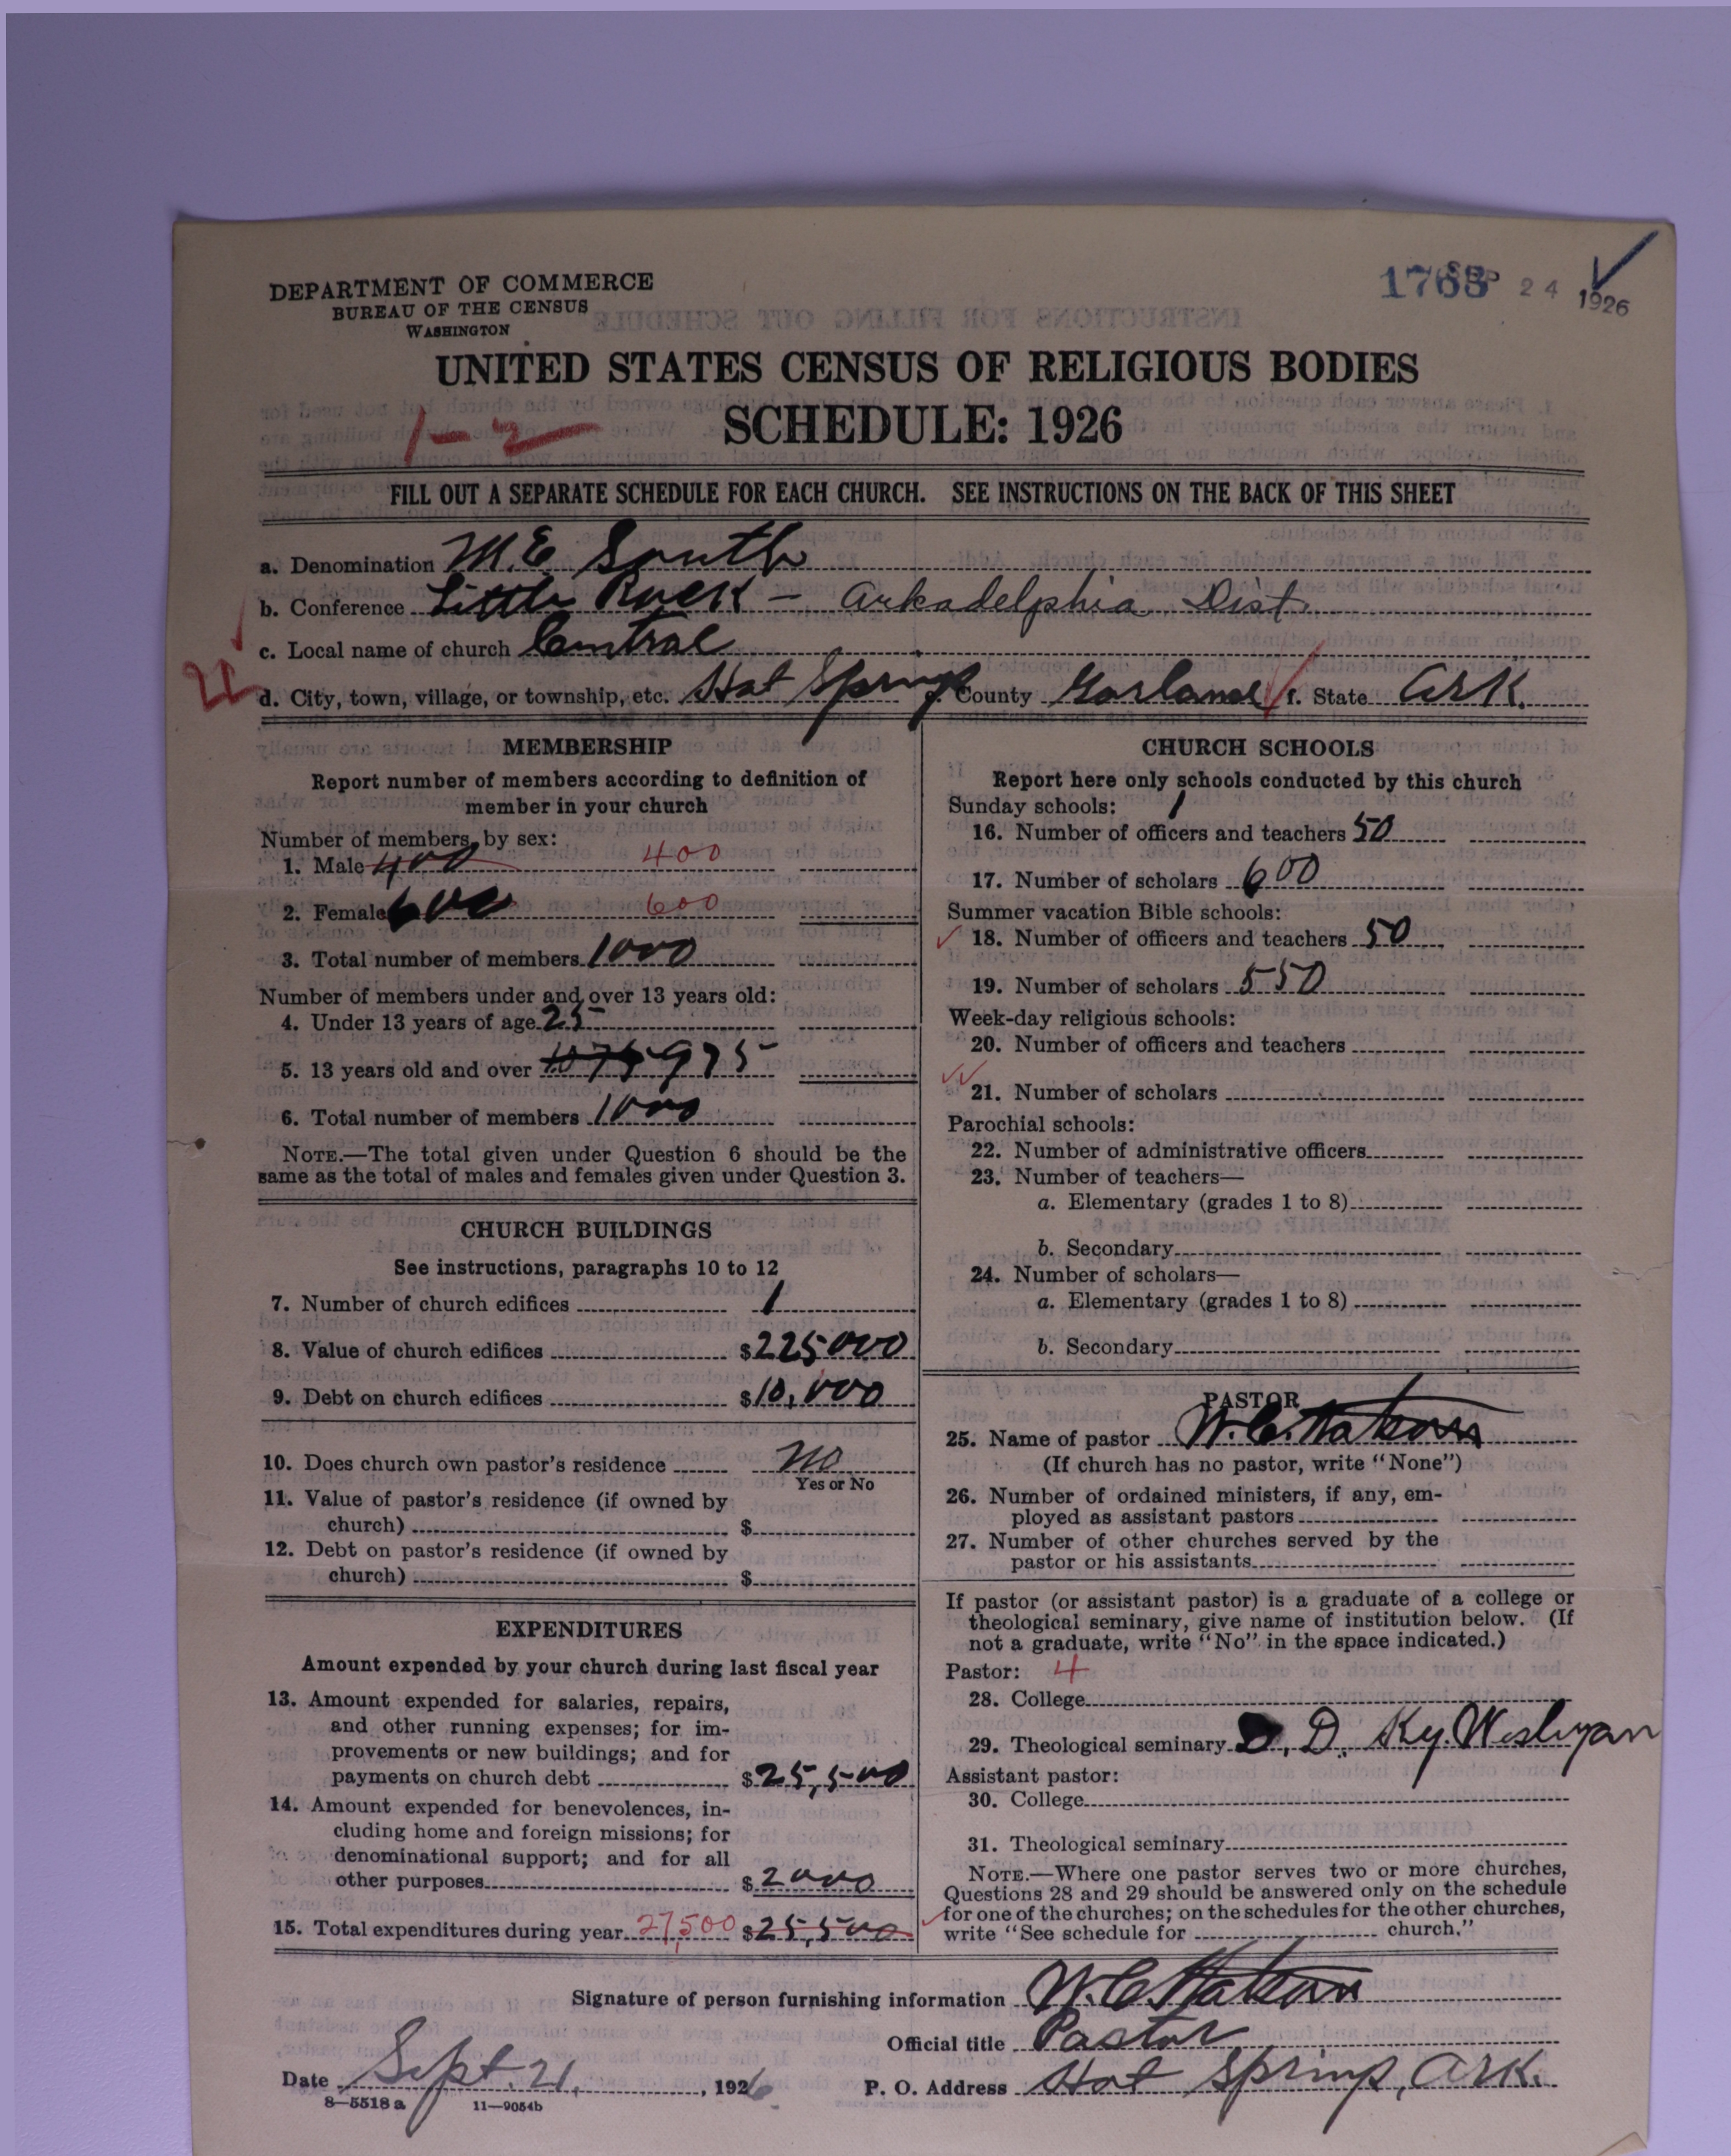 DEPARTMENT OF COMMERCE
BUREAU OF THE CENSUS
WASHINGTON
1763 SEP 24 1926
UNITED STATES CENSUS OF RELIGIOUS BODIES
1-2 SCHEDULE: 1926
FILL OUT A SEPARATE SCHEDULE FOR EACH CHURCH. SEE INSTRUCTIONS ON THE BACK OF THIS SHEET
a. Denomination M.E. South
b. Conference Little Rock - Arkadelphia Dist.
c. Local name of church Central
d. City, town, village, or township, etc. Hot Springs e. County Garland f. State Ark.
MEMBERSHIP
Report number of members according to definition of
member in your church
Number of members, by sex:
1. Male 400 400
2. Female 600 600
3. Total number of members 1000
Number of members under and over 13 years old:
4. Under 13 years of age 25
5. 13 years old and over 1075 975
6. Total number of members 1000
NOTE.—The total given under Question 6 should be the
same as the total of males and females given under Question 3.
CHURCH BUILDINGS
See instructions, paragraphs 10 to 12
7. Number of church edifices 1
8. Value of church edifices $225000
9. Debt on church edifices $10,000
10. Does church own pastor's residence No
Yes or No
11. Value of pastor's residence (if owned by
church) $
12. Debt on pastor's residence (if owned by
church) $
EXPENDITURES
Amount expended by your church during last fiscal year
13. Amount expended for salaries, repairs,
and other running expenses; for im-
provements or new buildings; and for
payments on church debt $25,500
14. Amount expended for benevolences, in-
cluding home and foreign missions; for
denominational support; and for all
other purposes $2000
15. Total expenditures during year 27,500 $25,500
CHURCH SCHOOLS
Report here only schools conducted by this church
Sunday schools: 1
16. Number of officers and teachers 50
17. Number of scholars 600
Summer vacation Bible schools:
18. Number of officers and teachers 50
19. Number of scholars 550
Week-day religious schools:
20. Number of officers and teachers
21. Number of scholars
Parochial schools:
22. Number of administrative officers
23. Number of teachers—
a. Elementary (grades 1 to 8)
b. Secondary
24. Number of scholars—
a. Elementary (grades 1 to 8)
b. Secondary
PASTOR
25. Name of pastor W.C. Watson
(If church has no pastor, write "None")
26. Number of ordained ministers, if any, em-
ployed as assistant pastors
27. Number of other churches served by the
pastor or his assistants
If pastor (or assistant pastor) is a graduate of a college or
theological seminary, give name of institution below. (If
not a graduate, write "No" in the space indicated.)
Pastor: 4
28. College
29. Theological seminary D. D. Ky. Wesleyan
Assistant pastor:
30. College
31. Theological seminary
NOTE.—Where one pastor serves two or more churches,
Questions 28 and 29 should be answered only on the schedule
for one of the churches; on the schedules for the other churches,
write "See schedule for church."
Signature of person furnishing information W.C. Watson
Official title Pastor
Date Sept. 21, 1926 P. O. Address Hot Springs, Ark.
8—5518 a 11—9054b